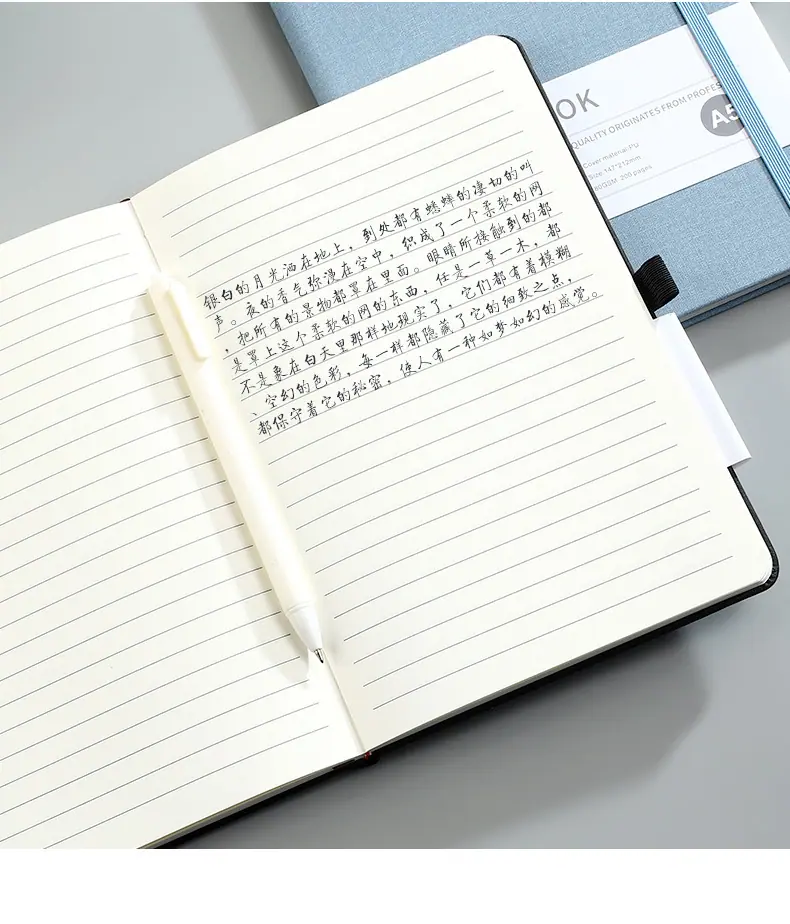 OK
QUALITY ORIGINATES FROM PROFES
A5
Cover material:PU
Size:147*212mm
80GSM 200 pages
银白的月光洒在地上，到处都有蟋蟀的凄切的叫
声。夜的香气弥漫在空中，织成了一个柔软的网
，把所有的景物都罩在里面。眼睛所接触到的都
是罩上这个柔软的网的东西，任是一草一木，都
不是象在白天里那样地现实了，它们都有着模糊
、空幻的色彩，每一样都隐藏了它的细致之点，
都保守着它的秘密，使人有一种如梦如幻的感觉。